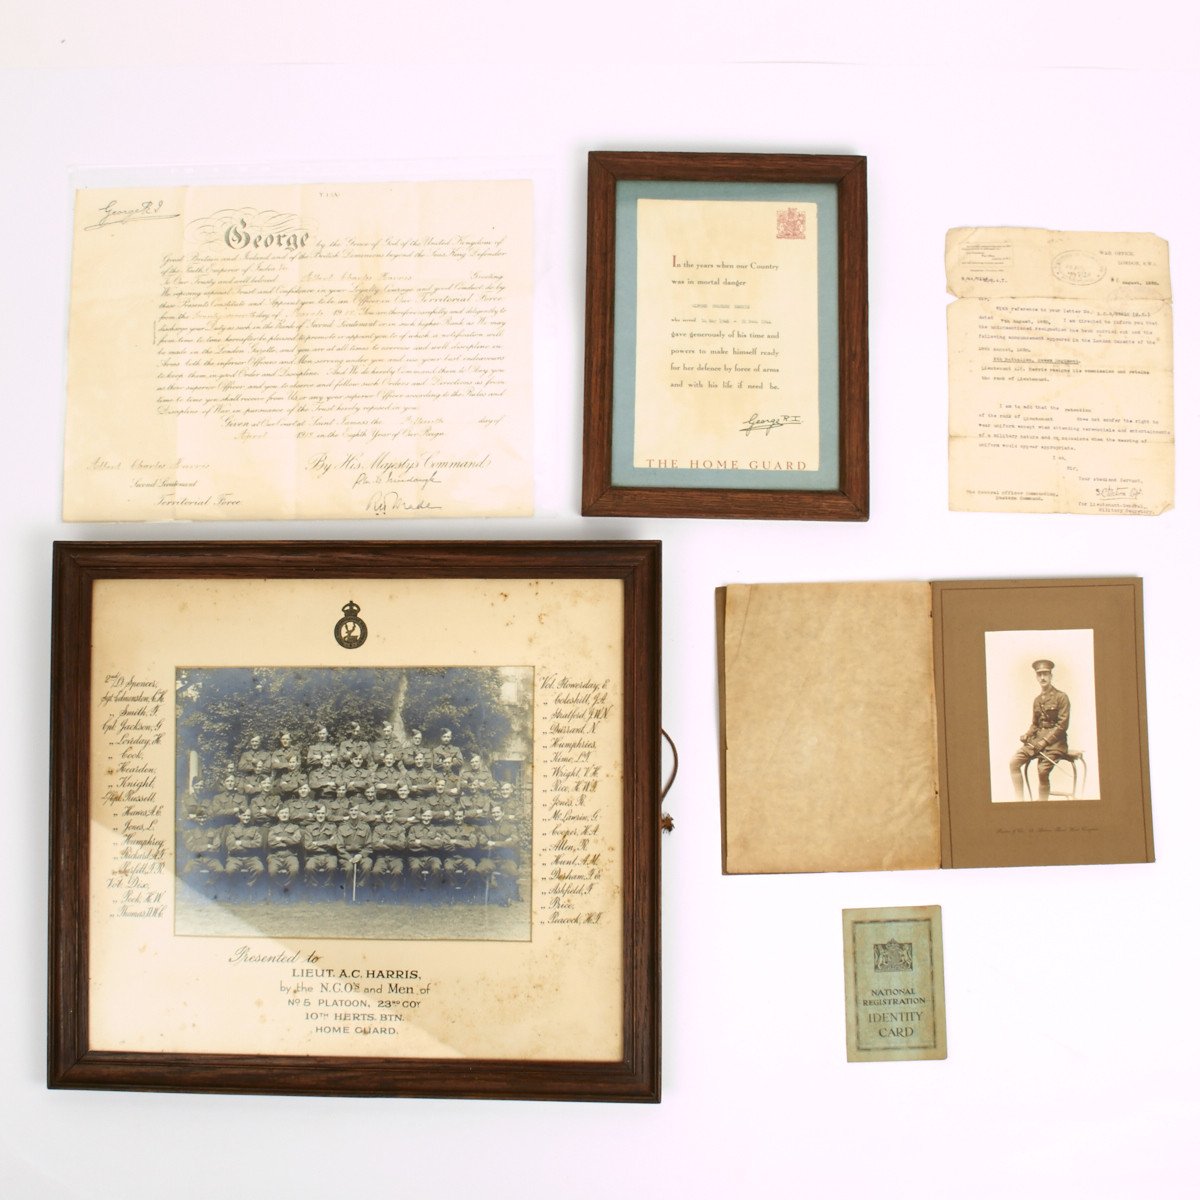 George R I
George by the Grace of God of the United Kingdom of
Great Britain and Ireland and of the British Dominions beyond the Seas King Defender
of the Faith Emperor of India &c
To Our Trusty and well beloved Albert Charles Harris Greeting
We reposing especial Trust and Confidence in your Loyalty Courage and good Conduct do by
these Presents Constitute and Appoint you to be an Officer in Our Territorial Force
from the day of March 19 You are therefore carefully and diligently to
discharge your Duty as such in the Rank of Second Lieutenant or in such higher Rank as We may
from time to time hereafter be pleased to promote or appoint you to of which a notification will
be made in the London Gazette and you are at all times to exercise and well discipline in
Arms both the inferior Officers and Men serving under you and use your best endeavours
to keep them in good Order and Discipline. And We do hereby Command them to Obey you
as their superior Officer and you to observe and follow such Orders and Directions as from
time to time you shall receive from Us or any your superior Officer according to the Rules and
Discipline of War in pursuance of the Trust hereby reposed in you
Given at Our Court at Saint James's the day of
April 19 in the Eighth Year of Our Reign
By His Majesty's Command
Albert Charles Harris
Second Lieutenant
Territorial Force
In the years when our Country
was in mortal danger
who served
gave generously of his time and
powers to make himself ready
for her defence by force of arms
and with his life if need be.
George R.I.
THE HOME GUARD
WAR OFFICE,
LONDON, S.W.1.
August, 1920.
Sir,
With reference to your letter No.
dated August, 1920, I am directed to inform you that
the has been carried out and the
following announcement appeared in the London Gazette of the
August, 1920.
Lieutenant A.C. Harris resigns his commission and retains
the rank of Lieutenant.
I am to add that the retention
of the rank of Lieutenant does not confer the right to
wear uniform except when attending ceremonials and entertainments
of a military nature and on occasions when the wearing of
uniform would appear appropriate.
I am,
Sir,
Your obedient Servant,
The General Officer Commanding,
Eastern Command.
for Lieutenant-General,
Military Secretary.
2nd Lt Spencer,
Sgt. Edmonston, C.H.
„ Smith, F.
Cpl. Jackson, G
„ Loveday, H.
„ Cook,
„ Hearden,
„ Knight,
L/Cpl. Russell,
„ Haines, A.E.
„ Jones, L.
„ Humphrey
„ Richard
Vol. Dix,
„ Peck, H.W.
„ Thomas
Vol. Flowerday, E.
„ Coleshill, J.A.
„ Stratford, J.W.N.
„ Durrant, N.
„ Humphries,
„ Kime, L.F.
„ Wright, V.H.
„ Rice, H.W.F.
„ Jones, R.
„ McLawrin, G.
„ Cooper, H.A.
„ Allen, R.
„ Hunt, A.M.
„ Dersham, F.E.
„ Ashfield, F
„ Price,
„ Peacock, H.F.
Presented to
LIEUT. A.C. HARRIS,
by the N.C.O's and Men of
No 5 PLATOON, 23RD COY
10TH HERTS. BTN.
HOME GUARD.
NATIONAL
REGISTRATION
IDENTITY
CARD